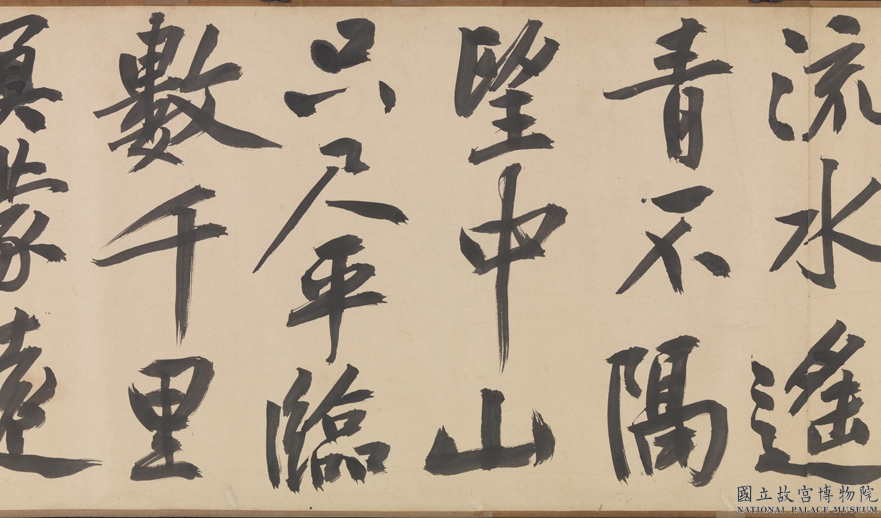 流水遙
青不隔
望中山
只尺平臨
數千里
冥蒙遠
國立故宮博物院
NATIONAL PALACE MUSEUM